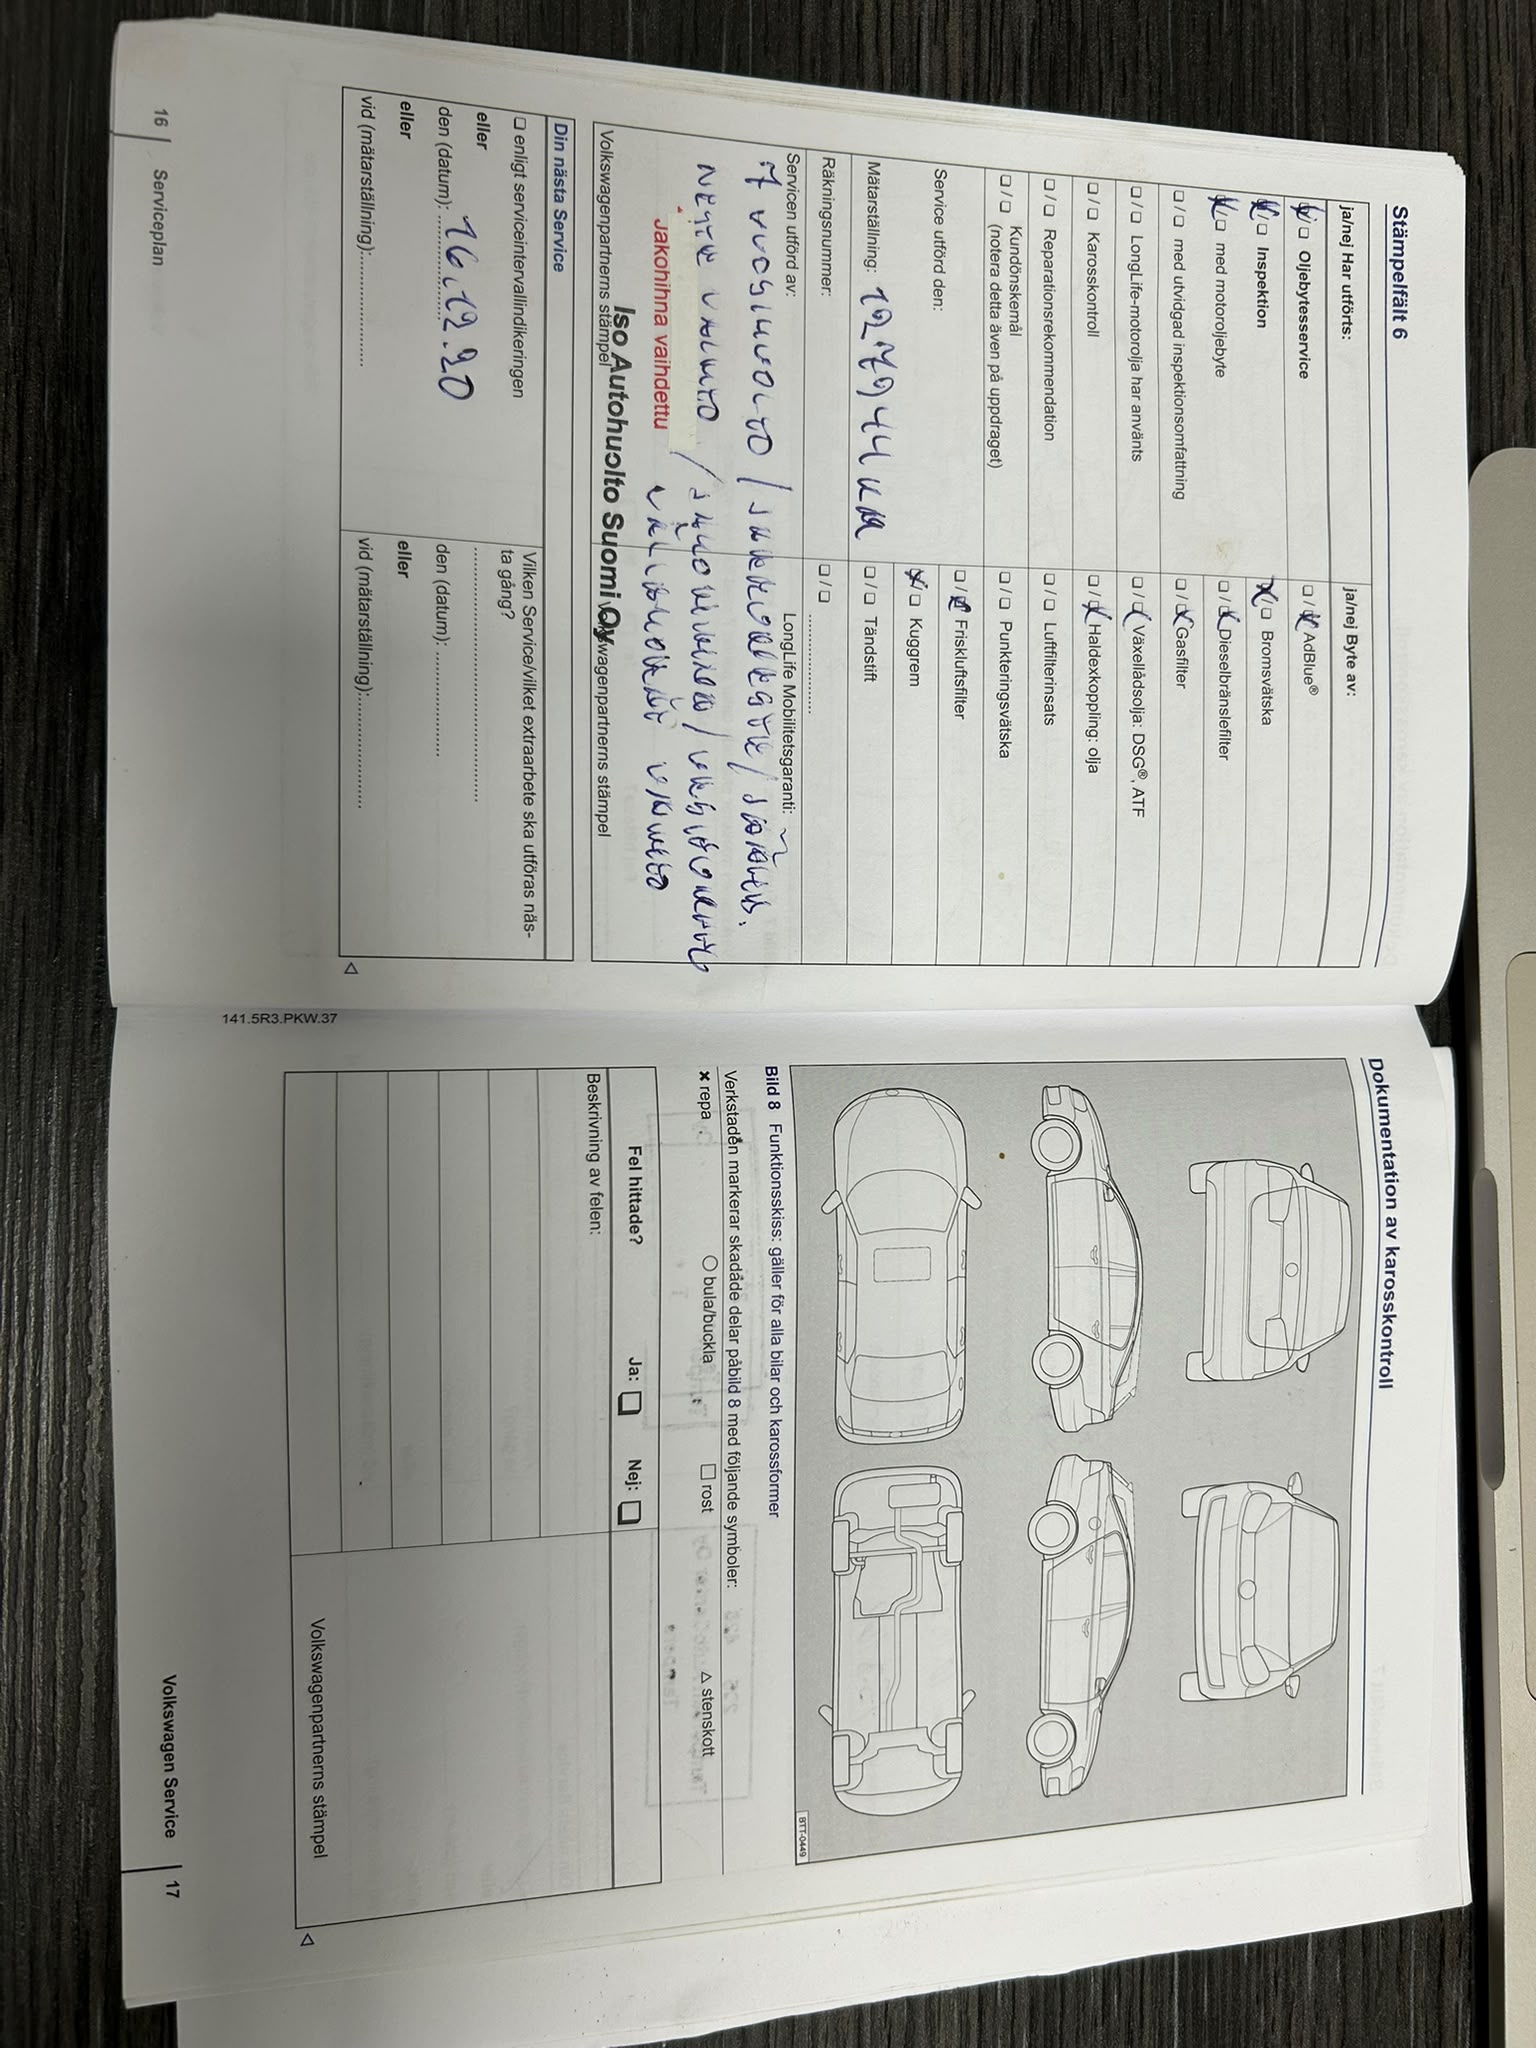 Stämpelfält 6
ja/nej Har utförts:
ja/nej Byte av:
☒/☐ Oljebytesservice
☐/☒ AdBlue®
☒/☐ Inspektion
☒/☐ Bromsvätska
☒/☐ med motoroljebyte
☐/☒ Dieselbränslefilter
☐/☐ med utvidgad inspektionsomfattning
☐/☒ Gasfilter
☐/☐ LongLife-motorolja har använts
☐/☒ Växellådsolja: DSG®, ATF
☐/☐ Karosskontroll
☐/☒ Haldexkoppling: olja
☐/☐ Reparationsrekommendation
☐/☐ Luftfilterinsats
☐/☐ Kundönskemål
(notera detta även på uppdraget)
☐/☐ Punkteringsvätska
Service utförd den:
☐/☒ Friskluftsfilter
☒/☐ Kuggrem
Mätarställning: 127944 KM
☐/☐ Tändstift
Räkningsnummer:
☐/☐ ....................
Servicen utförd av:
LongLife Mobilitetsgaranti:
7 VUOSIHUOLTO /
NESTE VAIHTO /
Jakohihna vaihdettu
Iso Autohuolto Suomi Oy
Volkswagenpartnerns stämpel
Volkswagenpartnerns stämpel
Din nästa Service
☐ enligt serviceintervallindikeringen
Vilken Service/vilket extraarbete ska utföras näs-
ta gång?
eller
den (datum): 16.12.20
den (datum): ....................
eller
eller
vid (mätarställning):....................
vid (mätarställning):....................
16 | Serviceplan
141.5R3.PKW.37
Dokumentation av karosskontroll
BTT-0449
Bild 8 Funktionsskiss: gäller för alla bilar och karossformer
Verkstaden markerar skadade delar påbild 8 med följande symboler:
✖ repa ○ bula/buckla □ rost △ stenskott
Fel hittade? Ja: ☐ Nej: ☐
Beskrivning av felen:
Volkswagenpartnerns stämpel
Volkswagen Service | 17